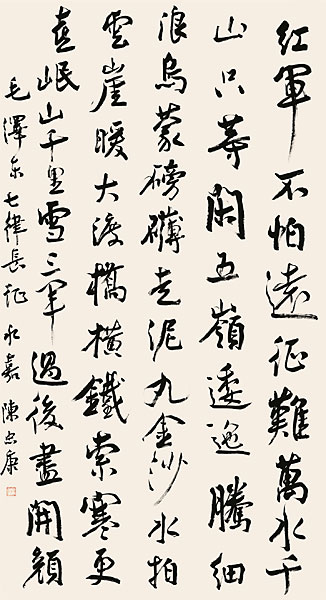 紅軍不怕遠征難萬水千
山只等閑五嶺逶迤騰細
浪烏蒙磅礴走泥丸金沙水拍
雲崖暖大渡橋橫鐵索寒更
喜岷山千里雪三軍過後盡開顏
毛澤東七律長征 永嘉陳忠康